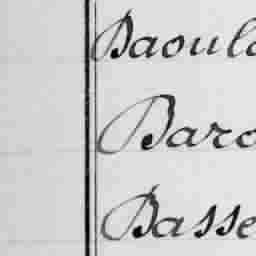 Daoula
Baro
Basse